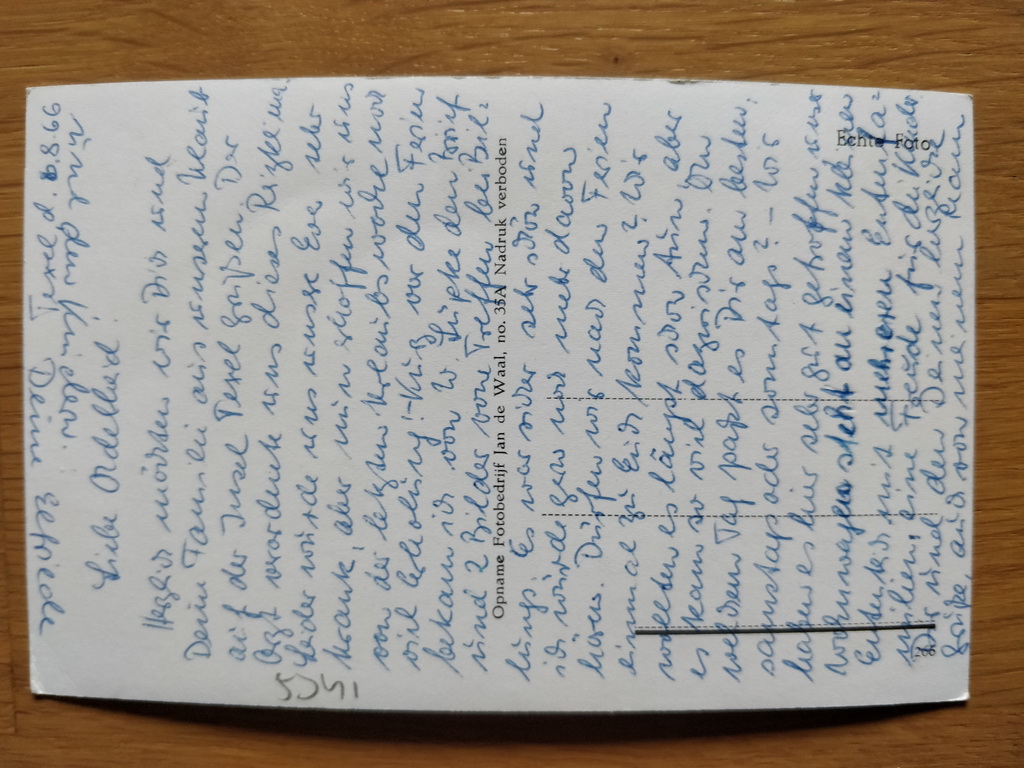 Texel, d. 9.8.66
Liebe Adelheid!
Herzlich möchten wir Dich und
Deine Familie aus unserem Urlaub
auf der Insel Texel grüßen. Der
Arzt verordnete uns dieses Reizklima.
Leider wurde uns unsere Eva sehr
krank, aber nun hoffen wir uns
von der letzten Urlaubswoche noch
viel Erholung! - Kurz vor den Ferien
bekam ich von W. Lüpke den Brief
und 2 Bilder vom Treffen bei Bril=
lungs. Es war wieder sehr schön und
ich würde gern noch mehr davon
hören. Dürfen wir nach den Ferien
einmal zu Euch kommen? Wir
wollten es längst schon tun aber
es kam so viel dazwischen. An
welchem Tag paßt es Dir am besten:
samstags oder sonntags? - Wir
haben es hier sehr gut getroffen, unser
Wohnwagen steht an einem kleinen
Ententeich mit mehreren Entenfa=
milien, eine Freude für die Kinder.
Dir und den Deinen herzliche
Grüße, auch von meinem Mann
und den Kindern.
Deine
Opname Fotobedrijf Jan de Waal, no. 35A Nadruk verboden
Echte Foto
266